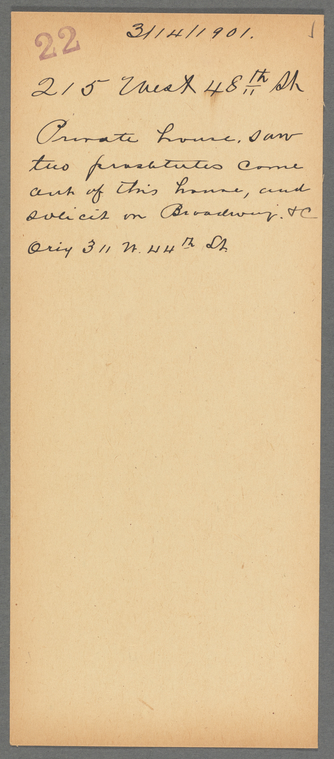 22
3/14/1901.
215 West 48th St
Private house. saw
two prostitutes come
out of this house, and
solicit on Broadway. &C
Orig 311 W. 44th St